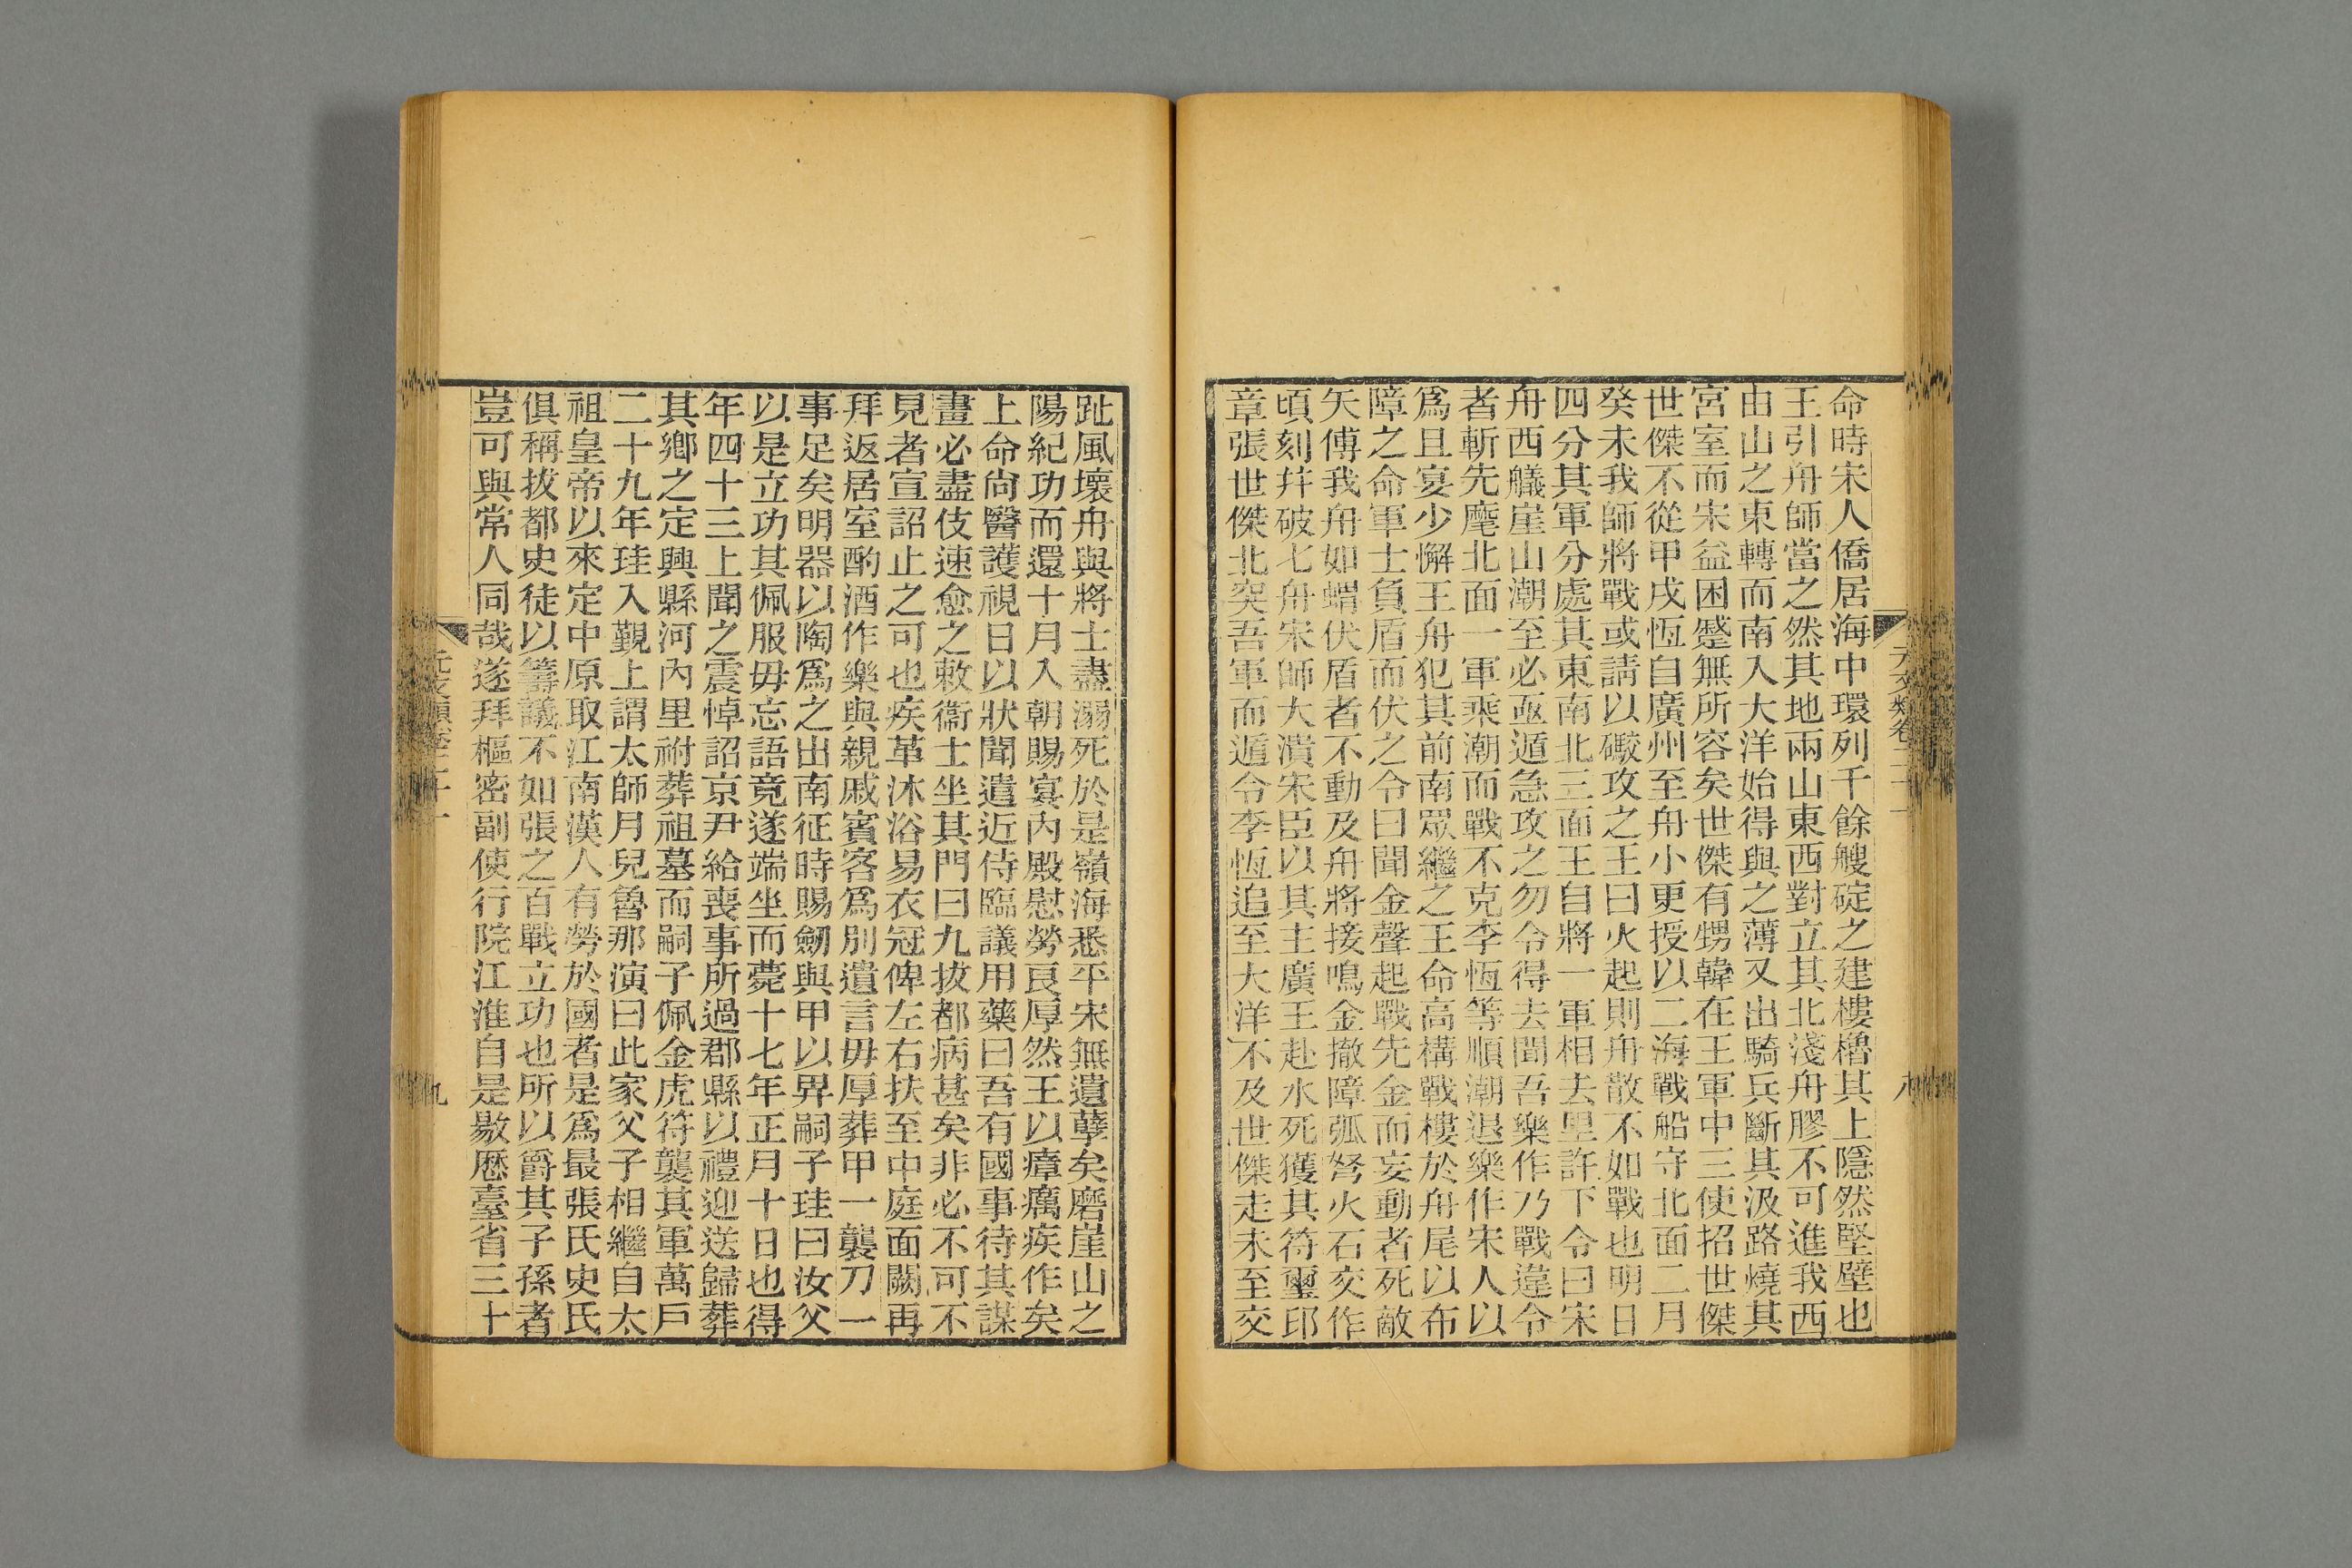 命時宋人僑居海中環列千餘艘碇之建樓櫓其上隱然堅壁也
王引舟師當之然其地兩山東西對立其北淺舟膠不可進我西
由山之東轉而南入大洋始得與之薄又出騎兵斷其汲路燒其
宮室而宋益困蹙無所容矣世傑有甥韓在王軍中三使招世傑
世傑不從甲戌恆自廣州至舟小更授以二海戰船守北面二月
癸未我師將戰或請以礮攻之王曰火起則舟散不如戰也明日
四分其軍分處其東南北三面王自將一軍相去里許下令曰宋
舟西艤崖山潮至必亟遁急攻之勿令得去聞吾樂作乃戰違令
者斬先麾北面一軍乘潮而戰不克李恆等順潮退樂作宋人以
爲且宴少懈王舟犯其前南眾繼之王命高構戰樓於舟尾以布
障之命軍士負盾而伏之令曰聞金聲起戰先金而妄動者死敵
矢傅我舟如蝟伏盾者不動及舟將接鳴金撤障弧弩火石交作
頃刻幷破七舟宋師大潰宋臣以其主廣王赴水死獲其符璽印
章張世傑北突吾軍而遁令李恆追至大洋不及世傑走未至交
元文類卷二十一
八
趾風壞舟與將士盡溺死於是嶺海悉平宋無遺孽矣磨崖山之
陽紀功而還十月入朝賜宴內殿慰勞良厚然王以瘴癘疾作矣
上命尙醫護視日以狀聞遣近侍臨議用藥曰吾有國事待其謀
畫必盡伎速愈之敕衞士坐其門曰九拔都病甚矣非必不可不
見者宣詔止之可也疾革沐浴易衣冠俾左右扶至中庭面闕再
拜返居室酌酒作樂與親戚賓客爲別遺言毋厚葬甲一襲刀一
事足矣明器以陶爲之出南征時賜劒與甲以畀嗣子珪曰汝父
以是立功其佩服毋忘語竟遂端坐而薨十七年正月十日也得
年四十三上聞之震悼詔京尹給喪事所過郡縣以禮迎送歸葬
其鄕之定興縣河內里祔葬祖墓而嗣子佩金虎符襲其軍萬戶
二十九年珪入覲上謂太師月兒魯那演曰此家父子相繼自太
祖皇帝以來定中原取江南漢人有勞於國者是爲最張氏史氏
俱稱拔都史徒以籌議不如張之百戰立功也所以爵其子孫者
豈可與常人同哉遂拜樞密副使行院江淮自是敭歷臺省三十
元文類卷二十一
九